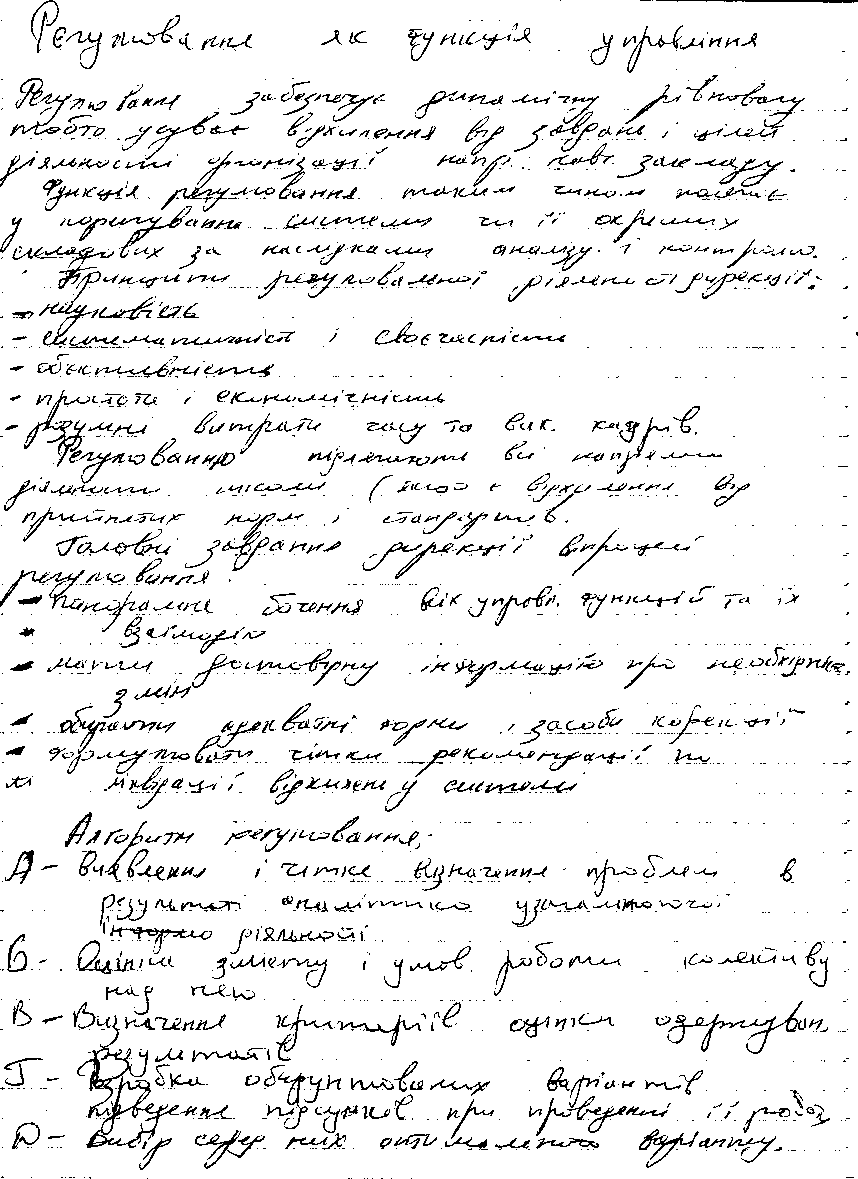 Регулювання як функція управління
Регулювання забезпечує динамічну рівновагу
тобто усуває відхилення від завдань і цілей
діяльності організації напр. навч. закладу.
Функція регулювання таким чином полягає
у коригуванні системи чи її окремих
складових за наслідками аналізу і контролю.
Принципи регулювальної діяльності дирекції:
- науковість
- систематичність і своєчасність
- обєктивність
- простота і економічність
- розумні витрати часу та вик. кадрів.
Регулюванню підлягають всі напрями
діяльності школи (якщо є відхилення від
прийнятих норм і стандартів.
Головні завдання дирекції в процесі
регулювання
- панорамне бачення всіх управл. функцій та їх
взаємодію
- мати достовірну інформацію про необхідність
змін
- обирати адекватні форми і засоби корекції
- формулювати чіткі рекомендації по
ліквідації відхилень у системі
Алгоритм регулювання:
А - виявлення і чітке визначення проблем в
результаті аналітико узагальнюючої
діяльності
Б - Оцінка змісту і умов роботи колективу
над нею
В - Визначення критеріїв оцінки одержуван.
результатів
Г - Розробка обґрунтованих варіантів
підведення підсумків при проведенні її
Д - Вибір серед них оптимального варіанту.